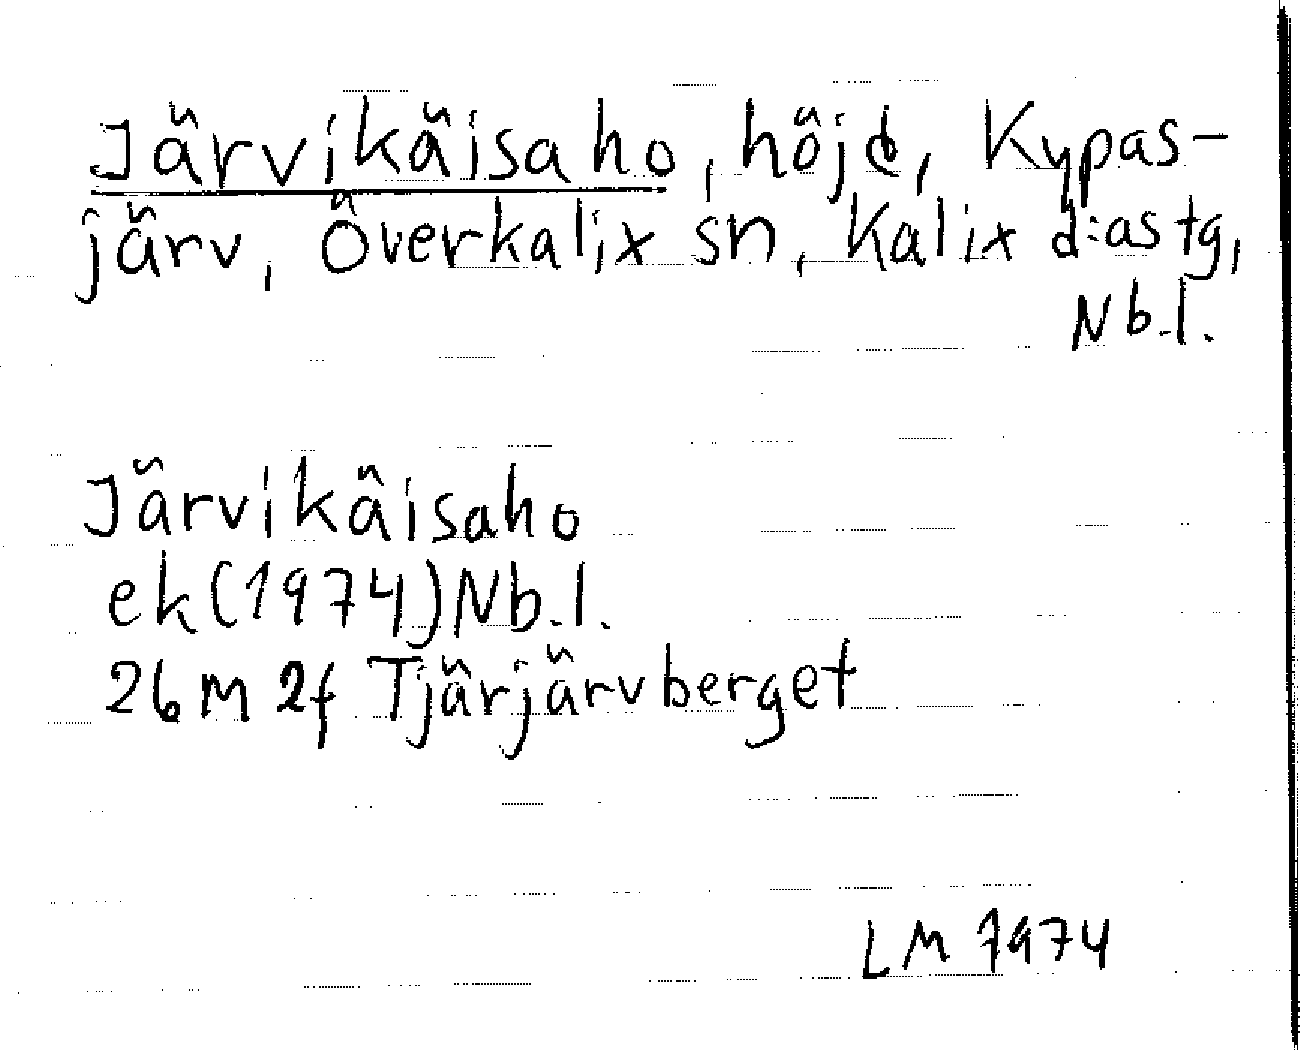 Järvikäisaho, höjd, Kypas-
järv, Överkalix sn, Kalix d:as tg,
Nb.l.
Järvikäisaho
ek(1974)Nb.l.
26M 2f Tjärjärvberget
LM 1974